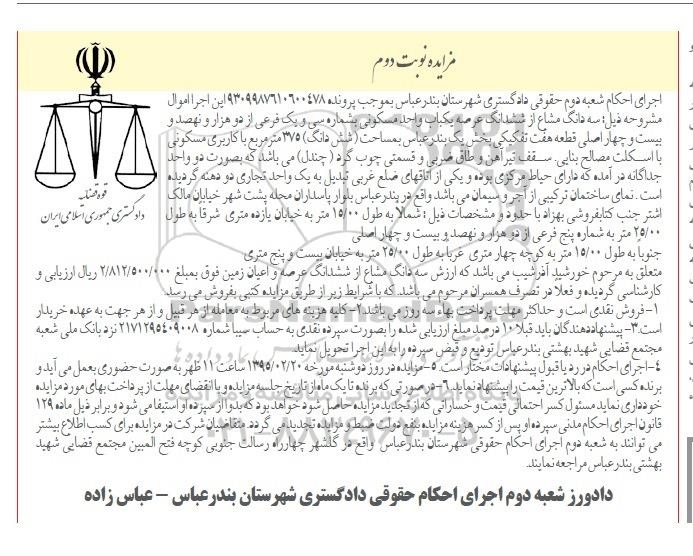 مزایده نوبت دوم
قوه قضائیه
دادگستری جمهوری اسلامی ایران
اجرای احکام شعبه دوم حقوقی دادگستری شهرستان بندرعباس بموجب پرونده ۹۳۰۹۹۸۷۶۱۰۶۰۰۴۷۸ این اجرا اموال
مشروحه ذیل: سه دانگ مشاع از ششدانگ عرصه یکباب واحد مسکونی بشماره سی و یک فرعی از دو هزار و نهصد و
بیست و چهار اصلی قطعه هفت تفکیکی بخش یک بندرعباس بمساحت (شش دانگ) ۳۷۵ مترمربع با کاربری مسکونی
با اسکلت مصالح بنایی. سقف تیرآهن و طاق ضربی و قسمتی چوب گرد (چندل) می باشد که بصورت دو واحد
جداگانه در آمده که دارای حیاط مرکزی بوده و یکی از اتاقهای ضلع غربی تبدیل به یک واحد تجاری دو دهنه گردیده
است. نمای ساختمان ترکیبی از آجر و سیمان می باشد واقع در بندرعباس بلوار پاسداران محله پشت شهر خیابان مالک
اشتر جنب کتابفروشی بهزاد با حدود و مشخصات ذیل: شمالا به طول ۱۵/۰۰ متر به خیابان یازده متری شرقا به طول
۲۵/۰۰ متر به شماره پنج فرعی از دو هزار و نهصد و بیست و چهار اصلی
جنوباً به طول ۱۵/۰۰ متر به کوچه چهار متری غرباً به طول ۲۵/۰۰ متر به خیابان بیست و پنج متری
متعلق به مرحوم خورشید آذرشیب می باشد که ارزش سه دانگ مشاع از ششدانگ عرصه و اعیان زمین فوق بمبلغ ۲/۸۱۲/۵۰۰/۰۰۰ ریال ارزیابی و
کارشناسی گردیده و فعلاً در تصرف همسران مرحوم می باشد که با شرایط زیر از طریق مزایده کتبی بفروش می رسد.
۱- فروش نقدی است و حداکثر مهلت پرداخت بهاء سه روز می باشد ۲- کلیه هزینه های مربوط به معامله از هر قبیل و از هر جهت به عهده خریدار
است ۳- پیشنهاددهندگان باید قبلا ۱۰ درصد مبلغ ارزیابی شده را بصورت سپرده نقدی به حساب سیبا شماره ۲۱۷۱۲۹۵۴۰۹۰۰۸ نزد بانک ملی شعبه
مجتمع قضایی شهید بهشتی بندرعباس تودیع و قبض سپرده را به این اجرا تحویل نماید.
۴- اجرای احکام در رد یا قبول پیشنهادات مختار است. ۵- مزایده در روز دوشنبه مورخه ۱۳۹۵/۰۲/۲۰ ساعت ۱۱ ظهر به صورت حضوری بعمل می آید و
برنده کسی است که بالاترین قیمت را پیشنهاد نماید ۶- در صورتی که برنده تا یک ماه از تاریخ جلسه مزایده و با انقضای مهلت از پرداخت بهای مورد مزایده
خودداری نماید مسئول کسر احتمالی قیمت و خساراتی که از تجدید مزایده حاصل شود خواهد بود که بدوا از سپرده او استیفا می شود و برابر ذیل ماده ۱۲۹
قانون اجرای احکام مدنی سپرده او پس از کسر هزینه مزایده بنفع دولت ضبط و مزایده تجدید می گردد. متقاضیان شرکت در مزایده برای کسب اطلاع بیشتر
می توانند به شعبه دوم اجرای احکام حقوقی شهرستان بندرعباس واقع در گلشهر چهارراه رسالت جنوبی کوچه فتح المبین مجتمع قضایی شهید
بهشتی بندرعباس مراجعه نمایند.
دادورز شعبه دوم اجرای احکام حقوقی دادگستری شهرستان بندرعباس - عباس زاده